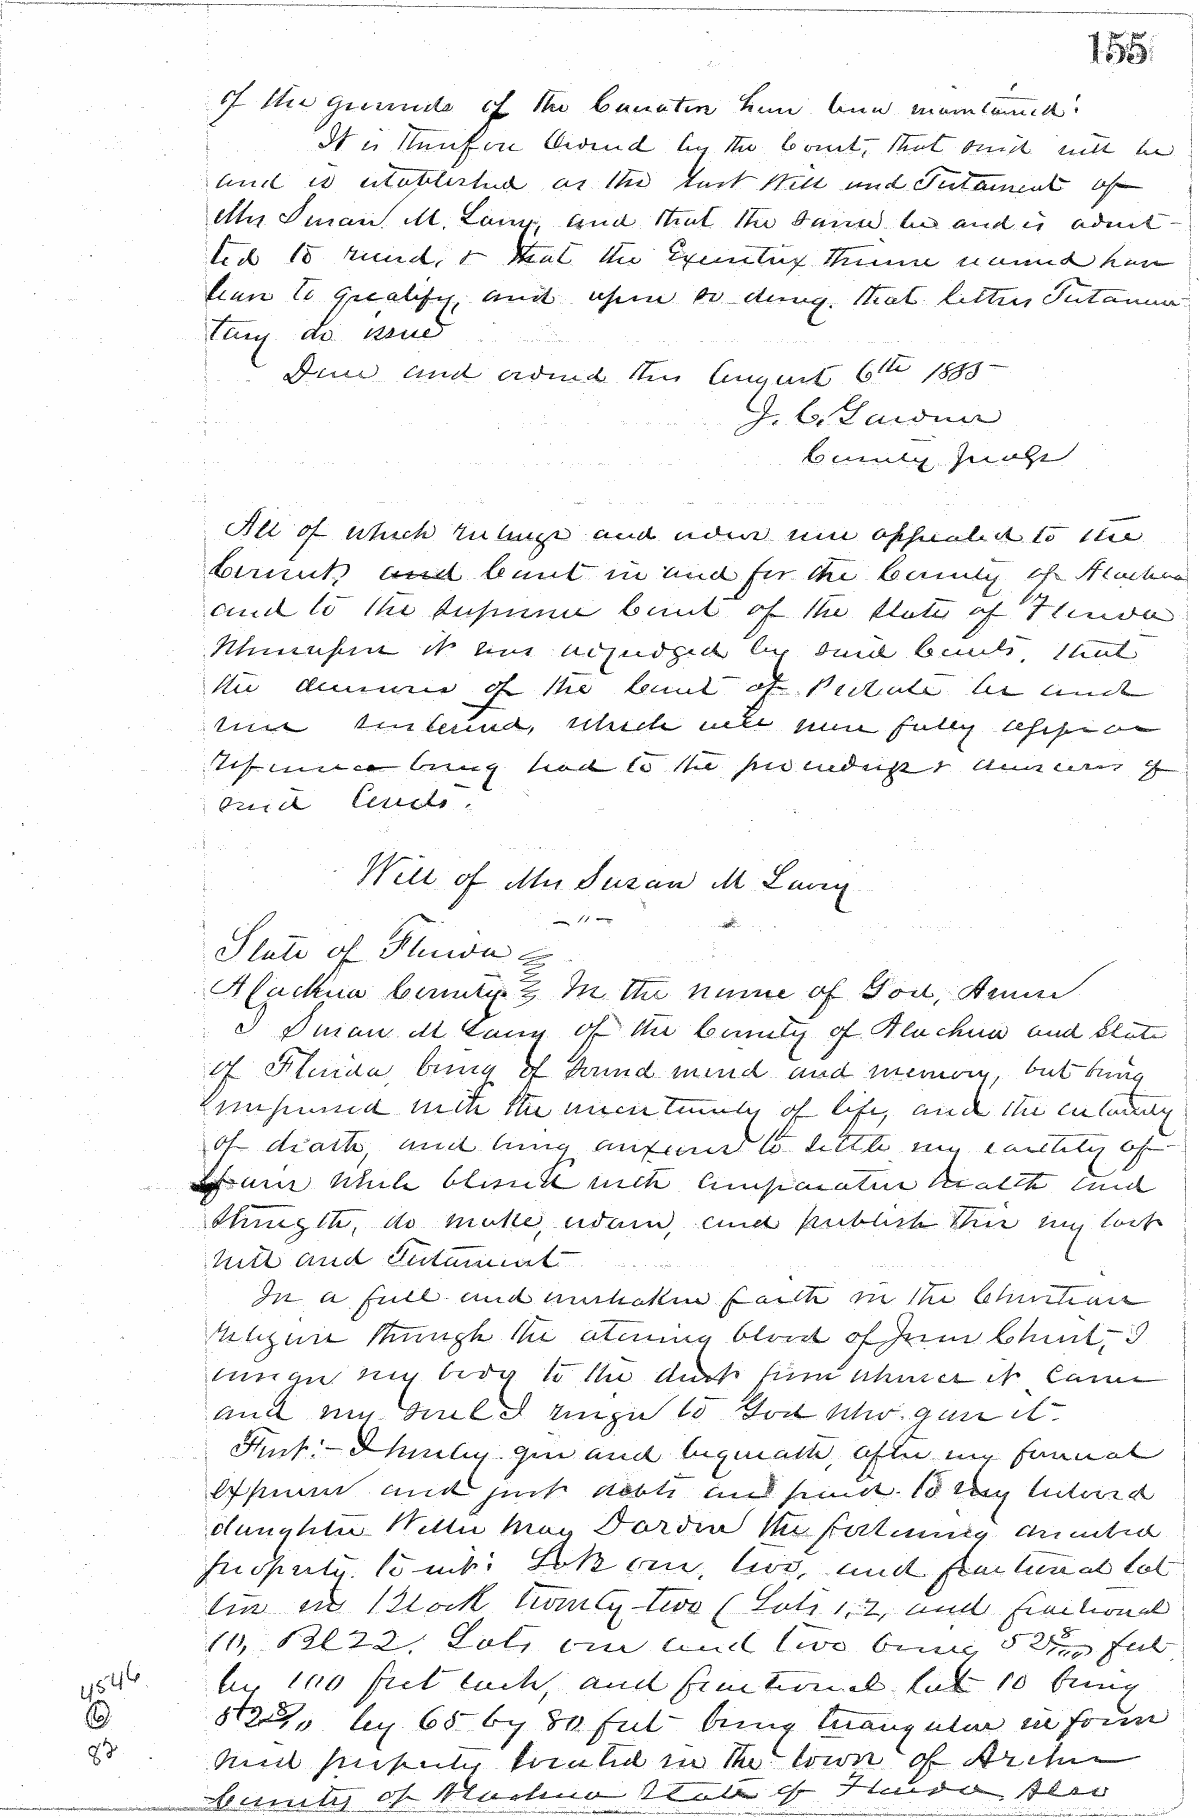 155
of the grounds of the Caveator have been maintained.
It is therefore Ordered by the Court, that said will be
and is established as the last Will and Testament of
Mrs Susan M. Lavy, and that the same be and is admit-
ted to record, & that the Executrix therein named have
leave to qualify, and upon so doing, that letters Testamen-
tary do issue
Done and ordered this August 6th 1885
J. C. Gardner
County Judge
All of which rulings and orders were appealed to the
Circuit and Court in and for the County of Alachua
and to the Supreme Court of the State of Florida
Whereupon it was adjudged by said Courts, that
the decisions of the Court of Probate be and
were sustained, which will more fully appear
reference being had to the proceedings & decisions of
said Courts.
Will of Mrs Susan M Lavy
State of Florida
Alachua County In the name of God, Amen
I Susan M Lavy of the County of Alachua and State
of Florida, being of sound mind and memory, but being
impressed with the uncertainty of life, and the certainty
of death, and being anxious to settle my earthly af-
fairs while blessed with comparative health and
strength, do make, ordain, and publish this my last
will and Testament
In a full and unshaken faith in the Christian
religion through the atoning blood of Jesus Christ, I
consign my body to the dust from whence it came
and my soul I resign to God who gave it.
First:- I hereby give and bequeath, after my funeral
expenses and just debts are paid to my beloved
daughter Willie May Darden the following described
property to wit: Lots one, two, and fractional lot
ten in Block twenty-two (Lots 1, 2, and fractional
10, Bl 22. Lots one and two being feet
by 100 feet each, and fractional lot 10 being
by 65 by 80 feet being triangular in form
said property located in the town of Archer
County of Alachua State of Florida Also
4546
6
82